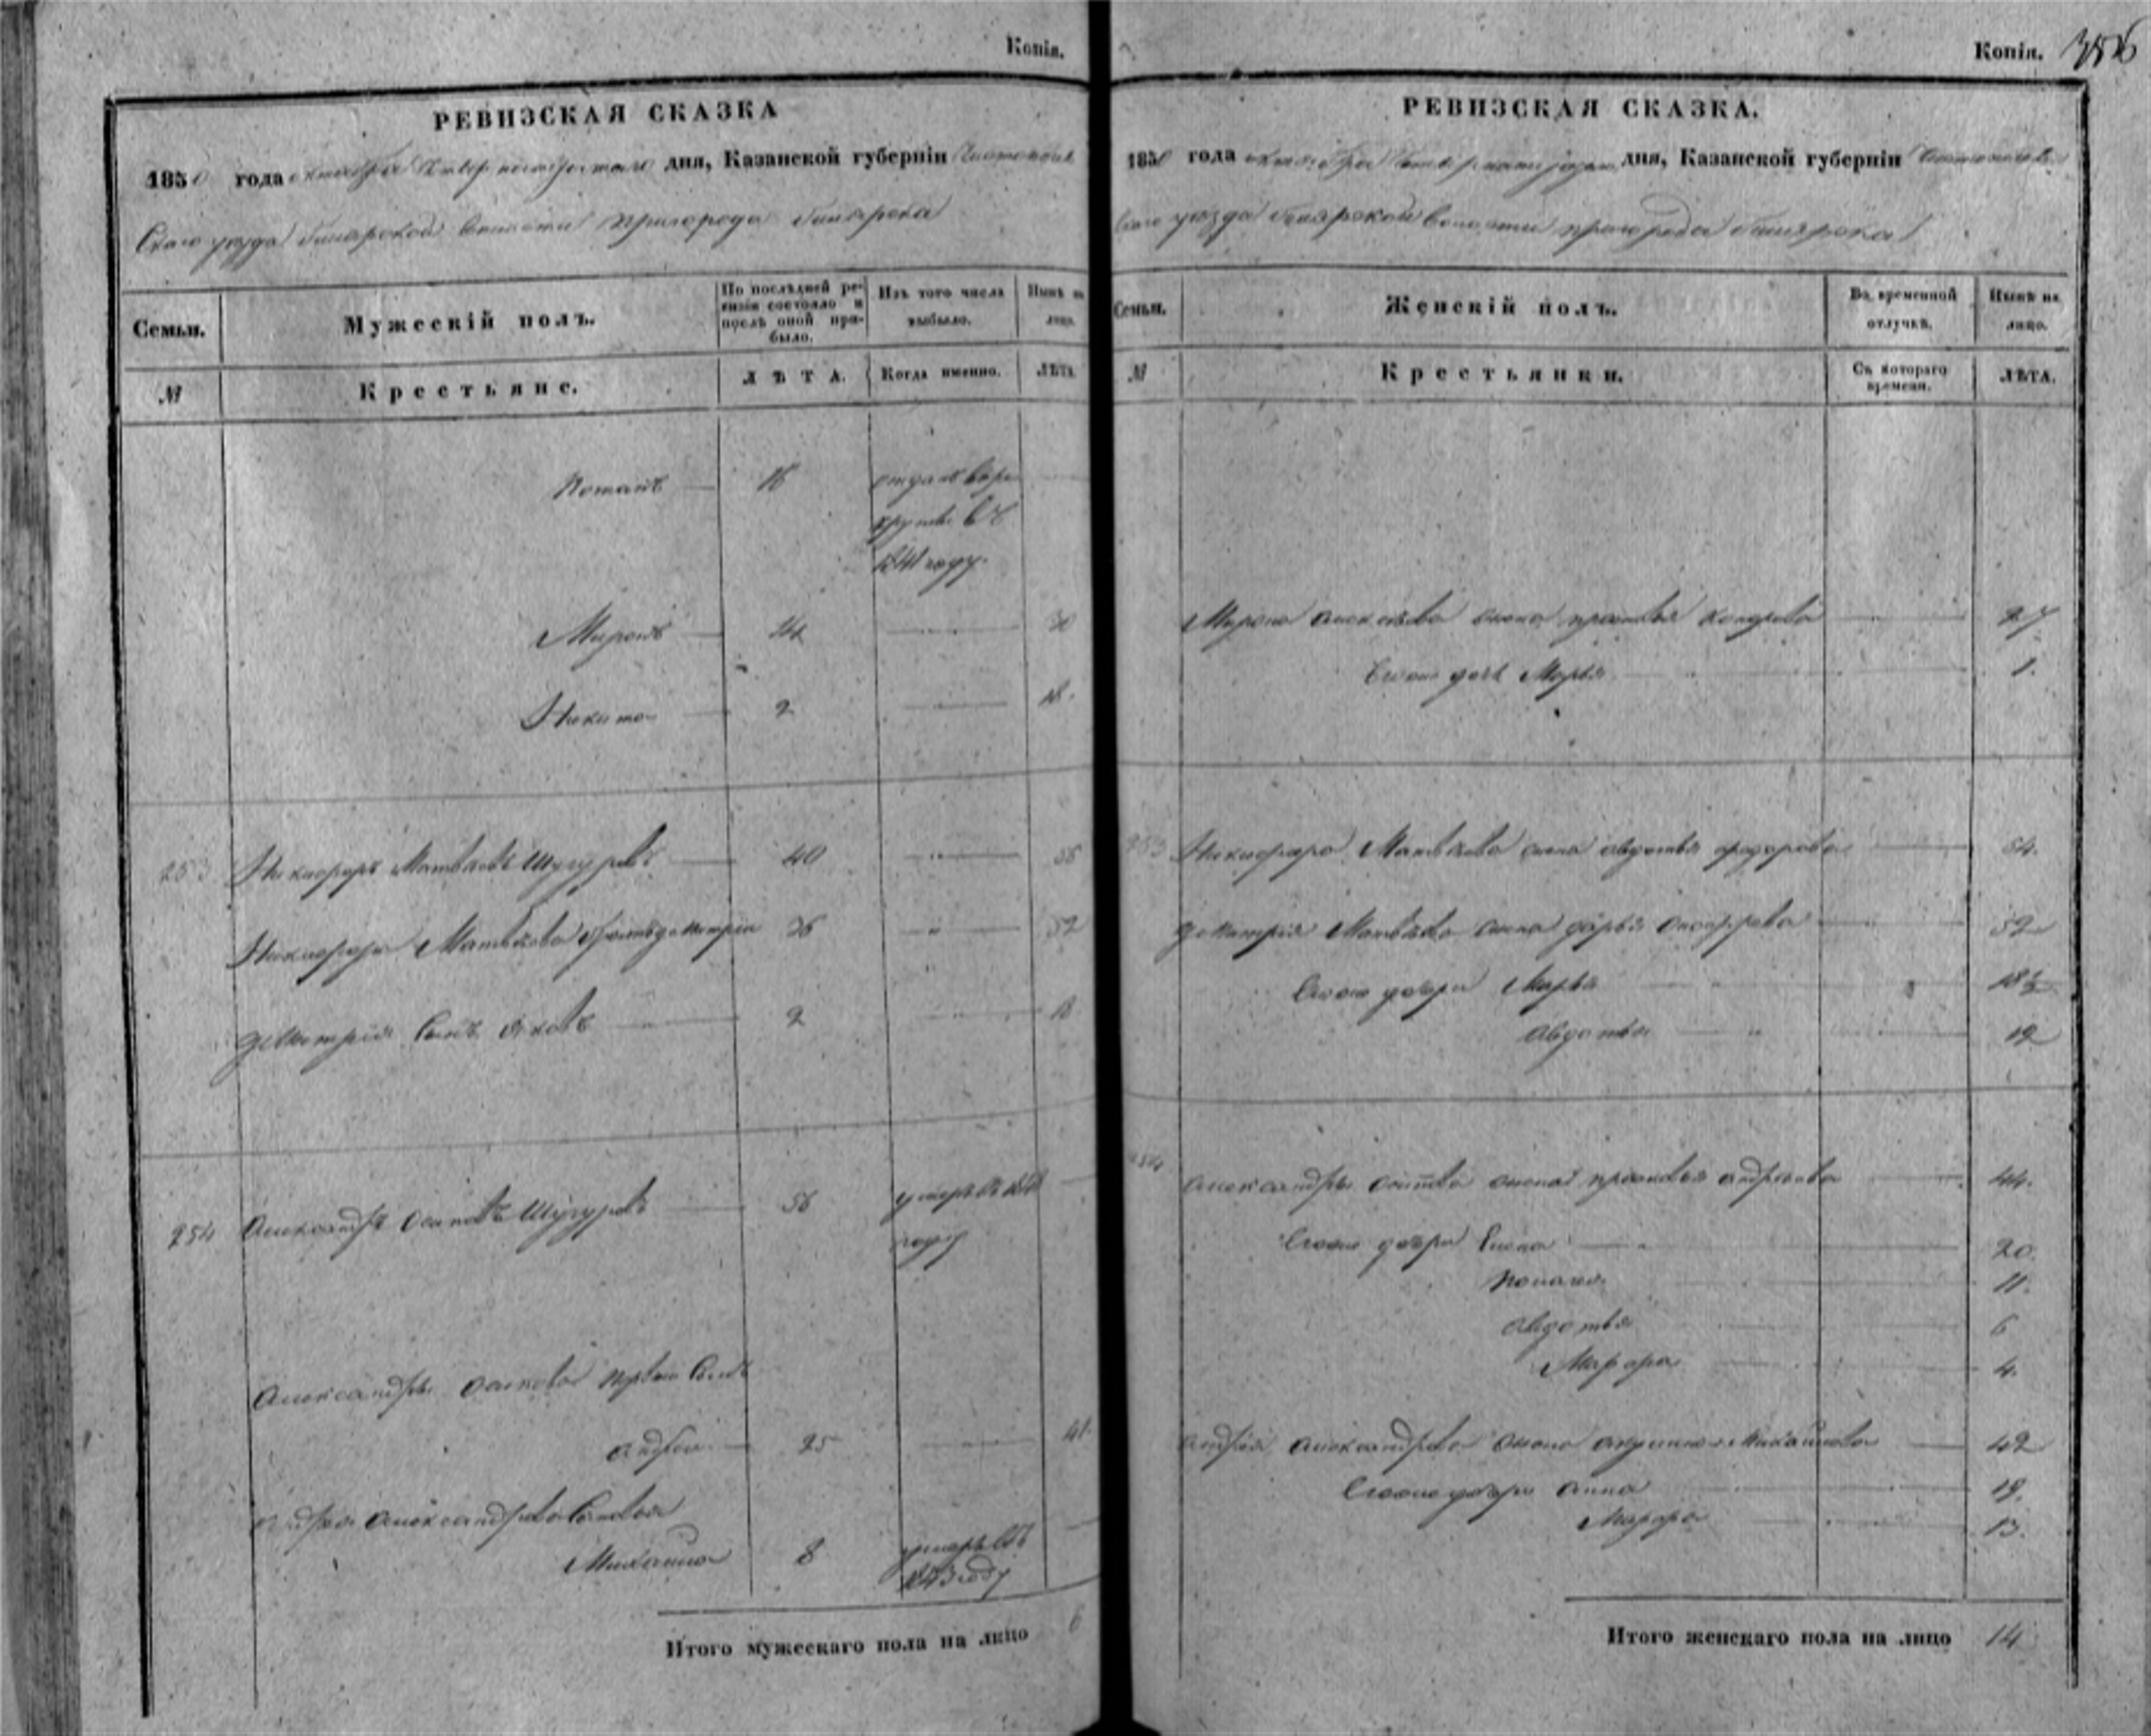 Копія.
РЕВИЗСКАЯ СКАЗКА
1850 года октября дня, Казанской губерніи Чистополь
скаго уѣзда билярской волости пригорода билярска
Семьи.
Мужескій полъ.
По послѣдней ре-
визіи состояло и
послѣ оной при-
было.
Изъ того числа
выбыло.
Нынѣ на
лицо.
№
Крестьяне.
ЛѢТА.
Когда именно.
ЛѢТА
Потапъ 16 отданъ въ ре
круты въ
1841 году.
Миронъ 14 30
Никита 2 18.
253 Никифоръ Матвѣевъ Шугуровъ 40 56
Никифора Матвѣева братъ дмитрій 36 52
дмитрія сынъ яковъ 2 18
254 александръ осиповъ Шугуровъ 56 умеръ въ
году
александра осипова первой сынъ
андрей 25 41.
андрея александрова сыновья
Михайла 8 умеръ въ
1843 году
Итого мужескаго пола на лицо 6
Копія. 356
РЕВИЗСКАЯ СКАЗКА.
1850 года октября дня, Казанской губерніи Чистополь
скаго уѣзда билярской волости пригорода билярска
Семьи.
Женскій полъ.
Въ временной
отлучкѣ.
Нынѣ на
лицо.
№
Крестьянки.
Съ котораго
времени.
ЛѢТА.
Мирона алексѣева жена прасковья 27
Ево дочь Марья 1.
253 Никифора Матвѣева жена авдотья федорова 54.
дмитрія Матвѣева жена дарья 52
Ево дочери Марья 18½
авдотья 12
254 александра осипова жена прасковья андреева 44.
Ево дочери Елена 20.
11.
авдотья 6
Марфа 4.
андрея александрова жена акулина Михайлова 42
Ево дочери анна 19.
Марфа 13.
Итого женскаго пола на лицо 14